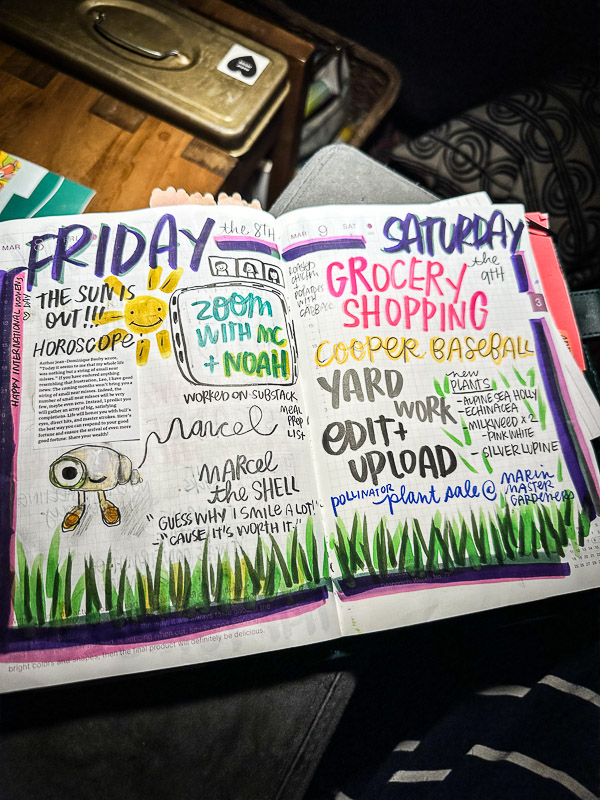 MAR 8 FRI
FRIDAY
the 8TH
HAPPY INTERNATIONAL WOMEN'S DAY
THE SUN IS
OUT!!!
HOROSCOPE:
Author Jean-Dominique Bauby wrote,
"Today it seems to me that my whole life
was nothing but a string of small near
misses." If you have endured anything
resembling that frustration, Leo, I have good
news: The coming months won't bring you a
string of small near misses. Indeed, the
number of small near misses will be very
few, maybe even zero. Instead, I predict you
will gather an array of big, satisfying
completions. Life will honor you with bull's
eyes, direct hits, and master strokes. Here's
the best way you can respond to your good
fortune and ensure the arrival of even more
good fortune: Share your wealth!
ZOOM
WITH MC
+ NOAH
WORKED ON SUBSTACK
MEAL
PREP
LIST
Marcel
MARCEL
the SHELL
"GUESS WHY I SMILE A LOT?"
-"'CAUSE IT'S WORTH IT."
bright colors and shapes, then the final product will definitely be delicious.
MAR 9 SAT
SATURDAY
the
9TH
ROASTED
CHICKEN
+
POTATOES
WITH
CABBAGE
GROCERY
SHOPPING
COOPER BASEBALL
YARD
WORK
new
PLANTS
- ALPINE SEA HOLLY
- ECHINACEA
- MILKWEED x 2
- PINK WHITE
- SILVER LUPINE
EDIT +
UPLOAD
POLLINATOR plant sale @ MARIN
MASTER
GARDENERS
3